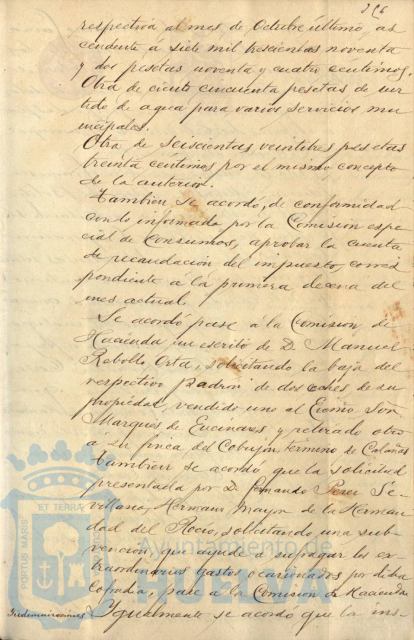 296
respectiva al mes de Octubre último, as
cendente a siete mil trescientas noventa
y dos pesetas noventa y cuatro centimos.
Otra de ciento cincuenta pesetas de sur
tido de agua para varios servicios mu
nicipales.
Otra de seiscientas veintitres pesetas
treinta centimos por el mismo concepto
de la anterior.
Tambien se acordó, de conformidad
con lo informado por la Comision espe
cial de Consumos, aprobar la cuenta
de recaudación del impuesto, corres
pondiente a la primera decena del
mes actual.
Se acordó pase á la Comision de
Hacienda un escrito de D. Manuel
Rebollo Orta, solicitando la baja del
respectivo padrón de dos coches de su
propiedad, vendido uno al Excmo Señor
Marqués de y retirado otro
a su finca del término de Calañas
Tambien se acordó que la solicitud
presentada por D. Perez Se
villano, Hermano mayor de la Herman
dad del Rocio, solicitando una sub-
vención, que ayude a sufragar los ex-
traordinarios gastos ocasionados por dicha
cofradia, pase a la Comision de Hacienda
Indemnizaciones Igualmente se acordó que la ins-
PORTUS MARIS ET TERRAE
Ayuntamiento de
HUELVA